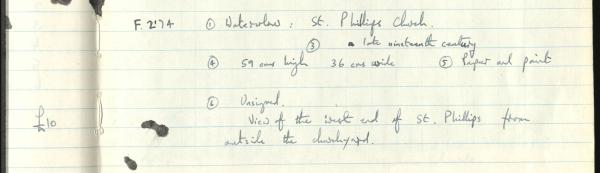 F.2'74 ① Watercolour : St. Phillips Church.
③ late nineteenth century
④ 59 cms high 36 cms wide ⑤ Paper and paint
⑥ Unsigned.
£10 View of the west end of St. Phillips from
outside the churchyard.